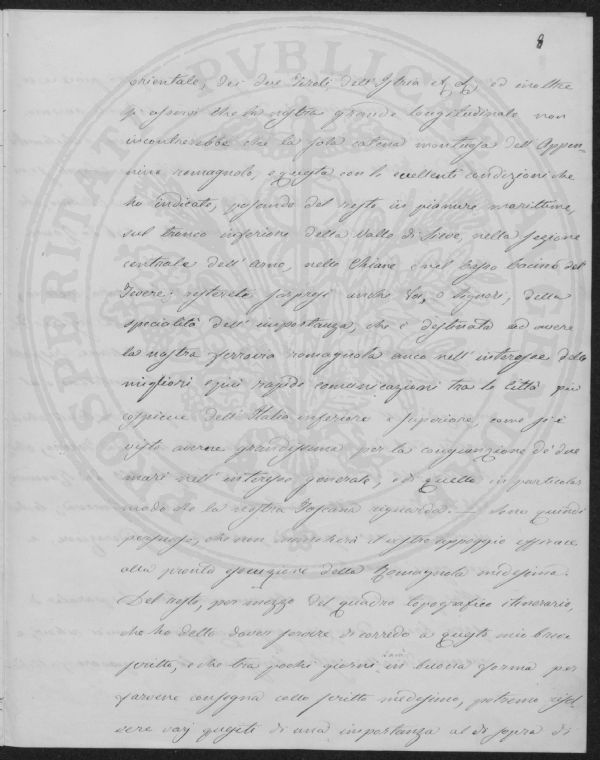 8
orientale, dei due Tiroli dell'Istria et. et. ed inoltre
si osservi che la nostra grande longitudinale non
incontrerebbe che la sola catena montuosa dell'Appen-
nino romagnolo, e questa con le eccellenti condizioni che
ho indicato, posando del resto in pianure marittime,
sul tronco inferiore della Valle di Sieve, nella sezione
centrale dell'Arno, nelle Chiane e nel basso bacino del
Tevere; resterete sorpresi anche Voi, o Signori, della
specialità dell'importanza, che è destinata ad avere
la nostra ferrovia romagnola anco nell'interesse delle
migliori e più rapide comunicazioni tra le Città più
cospicue dell'Italia inferiore e superiore, come si è
visto averne grandissima per la congiunzione de' due
mari nell'interesse generale, e di quello in particolar
modo che la nostra Toscana riguarda. — Sono quindi
persuaso, che non mancherà il vostro appoggio efficace
alla pronta esecuzione della Romagnola medesima.
Del resto, per mezzo del quadro topografico itinerario,
che ho detto dover servire di corredo a questo mio breve
scritto, e che tra pochi giorni sarà in buona forma per
farvene consegna collo scritto medesimo, potremo risol
vere varj quesiti di una importanza al di sopra di